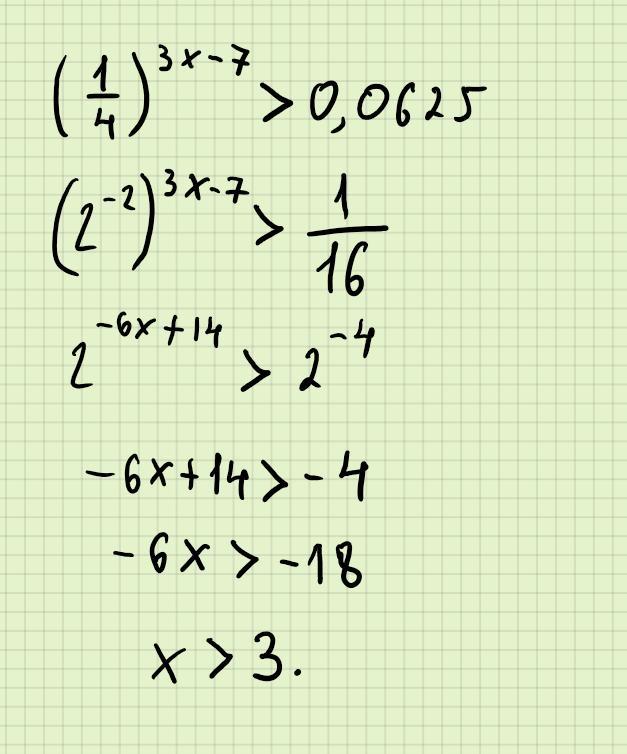 (1/4)^(3x-7) > 0,0625
(2^(-2))^(3x-7) > 1/16
2^(-6x+14) > 2^(-4)
-6x+14 > -4
-6x > -18
x > 3.